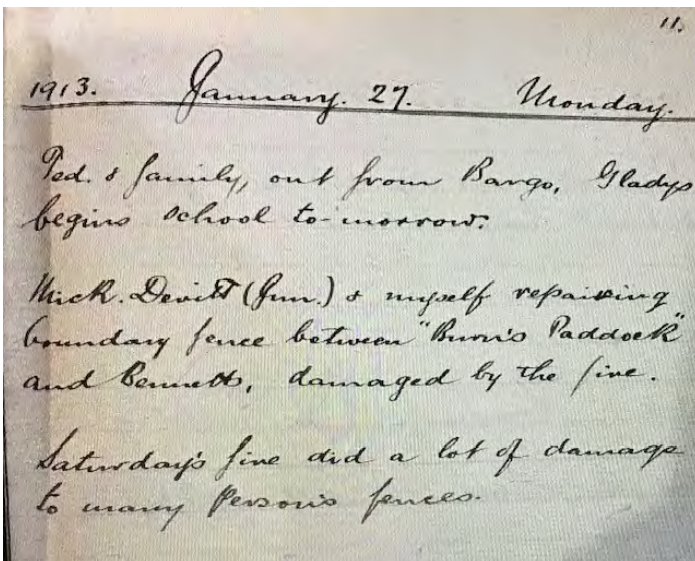 11.
1913. January. 27. Monday.
Ted. & family, out from Bargo, Gladys
begins school to-morrow.
Mick. Devitt (Jun.) & myself repairing
boundary fence between "Burn's Paddock"
and Bennetts, damaged by the fire.
Saturday's fire did a lot of damage
to many Person's fences.